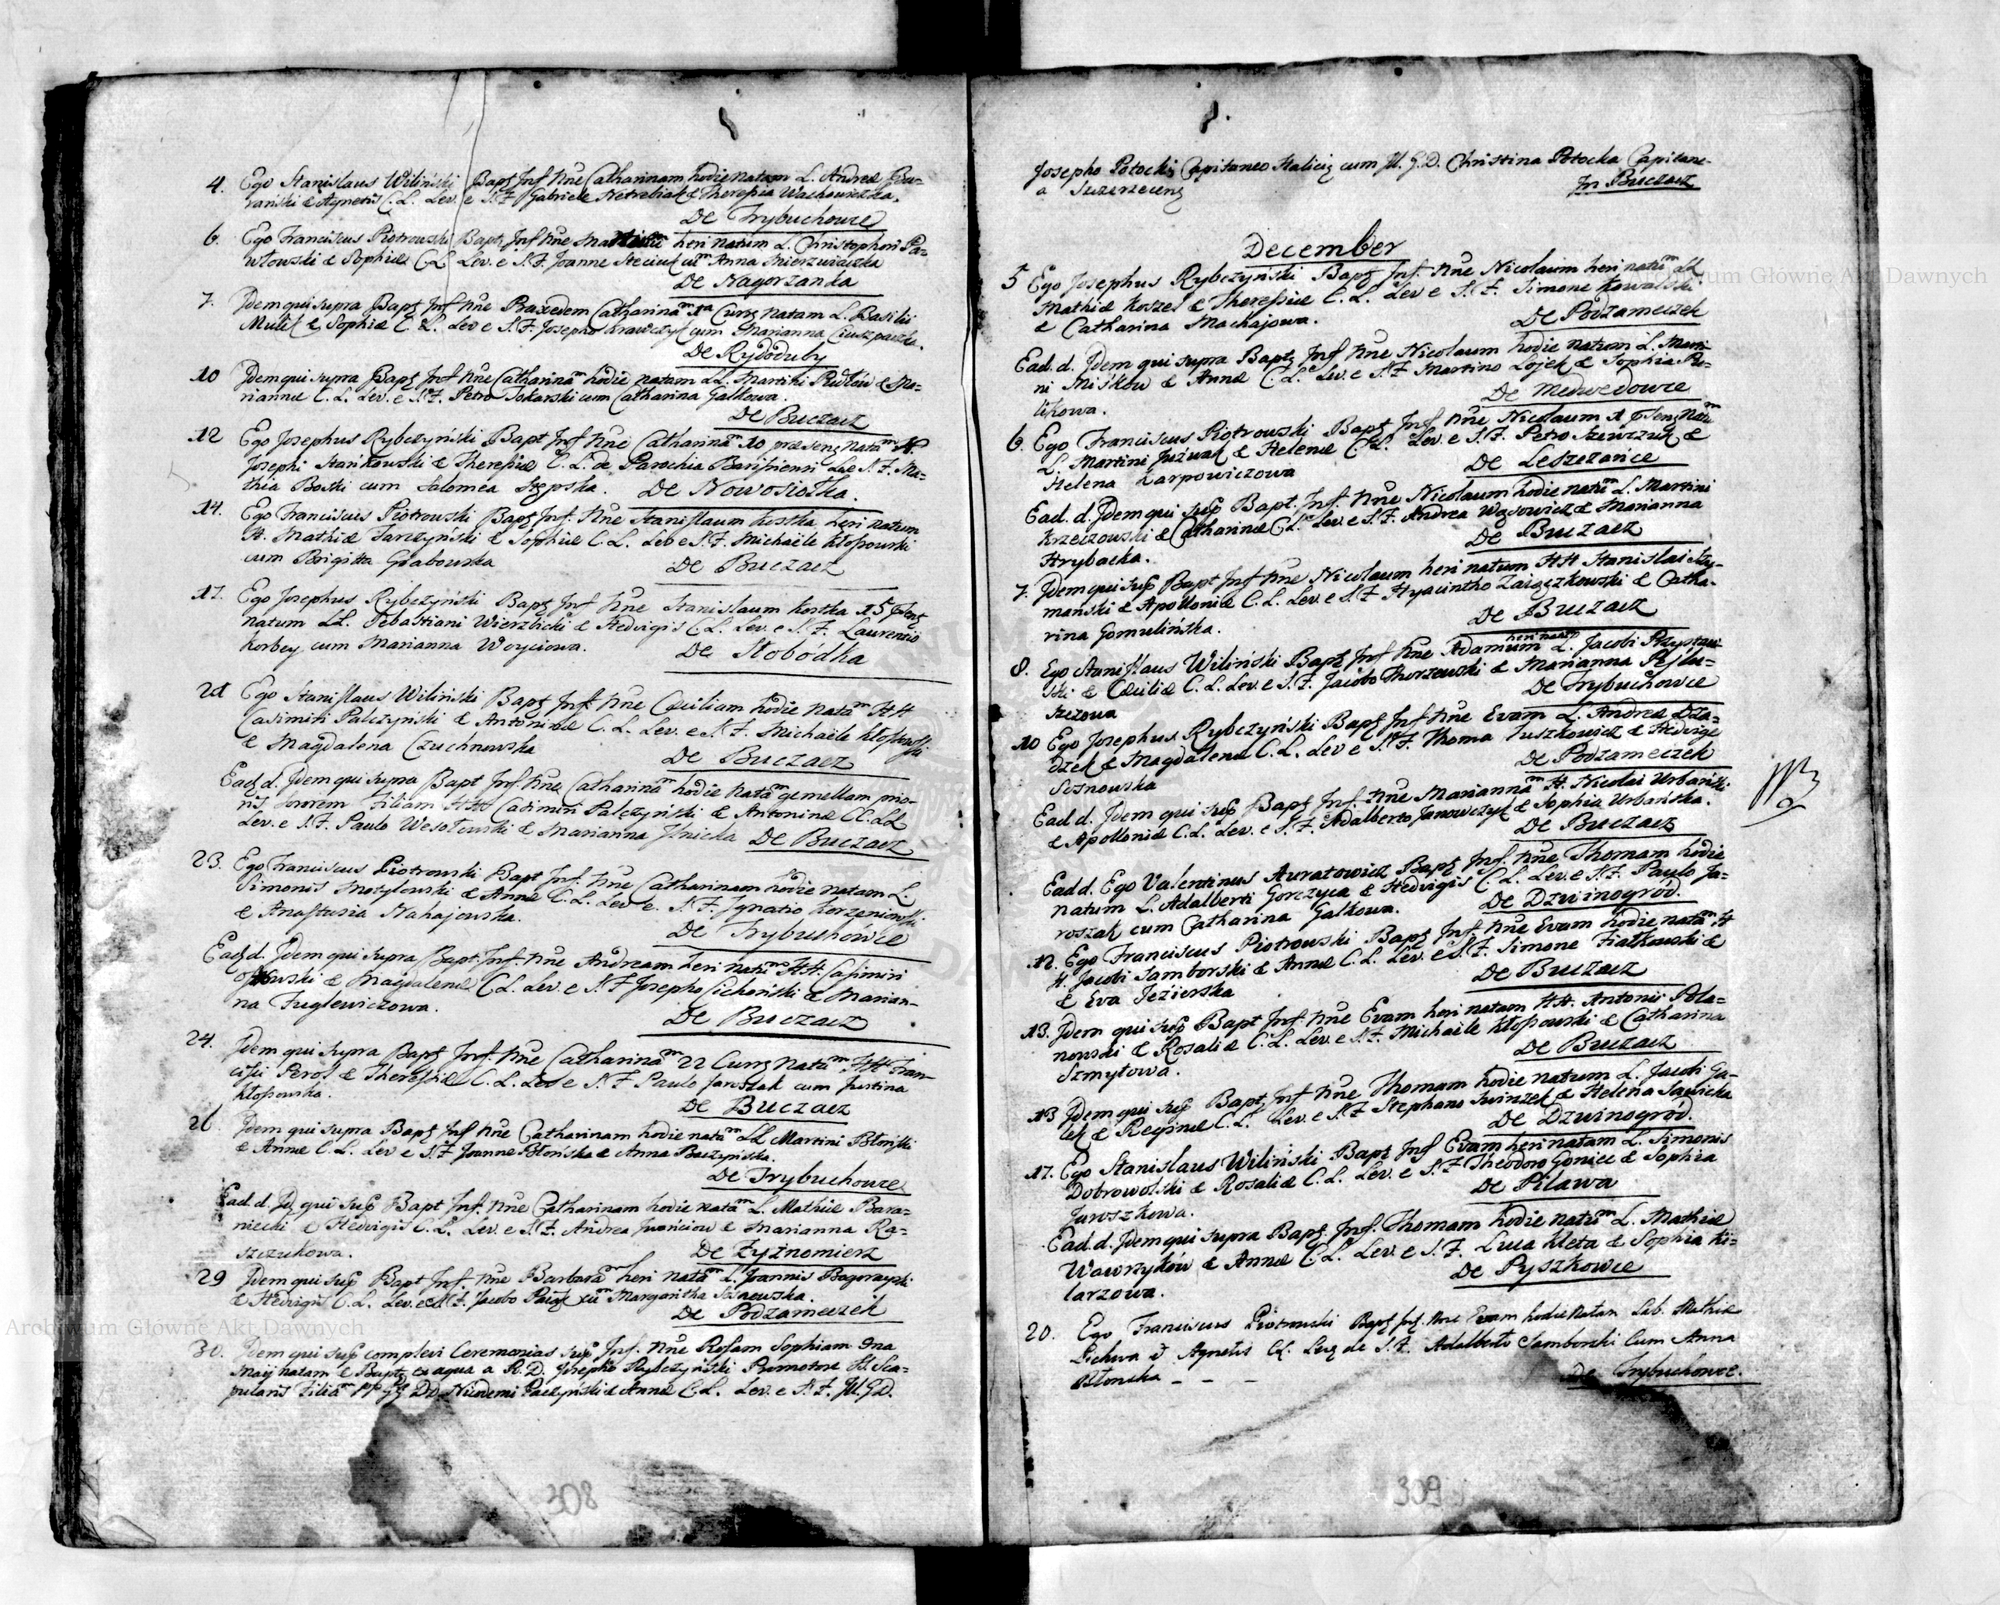 4. Ego Stanislaus Wiliński Bapt. Inf. Nne Catharinam hodie natam L. Andreæ Bu-
rański & Agnetis C. L. Lev. e S. F. Gabriele Netrebiak & Theresia Wachowiczka.
De Trybuchowce
6. Ego Franciscus Piotrowski Bapt Inf Nne heri natum L. Christophori Pa-
włowski & Sophiæ C L Lev. e S. F. Joanne Steciuk cum Anna Mierzwiaczka
De Nagorzanka
7. Idem qui supra Bapt Inf Nne Praxedem Catharinam 1a Curng natam L. Basilii
Mulik & Sophiæ C. L. Lev e S. F. Josepho Krawczyk cum Marianna
De Rydoduby
10 Idem qui supra Bapt Inf Nne Catharinam hodie natam LL. Martini & Ma-
riannæ C. L. Lev. e S. F. Petro Tokarski cum Catharina Galkowa.
De Buczacz
12 Ego Josephus Rybczyński Bapt Inf Nne Catharinam 10 præseng natam H.
Josephi Stańkowski & Theresiæ C. L. de Parochia Lev e S. F. Ma-
thia Boski cum Salomea Stępska. De Nowosiołka.
14. Ego Franciscus Piotrowski Bapt Inf. Nne Stanislaum Kostka heri natum
H. Mathiæ Jarczyński & Sophiæ C. L. Lev e S. F. Michaele Kłossowski
cum Brigitta Grabowska De Buczacz
17. Ego Josephus Rybczyński Bapt Inf Nne Stanislaum Kostka 15 præng
natum LL. Sebastiani Wierzbicki & Hedvigis C. L. Lev. e S. F. Laurentio
Korbey cum Marianna Woyciowa. De Słobódka
21 Ego Stanislaus Wiliński Bapt Inf. Nne Cæciliam hodie natam HH
Casimiri Palczyński & Antoninæ C. L. Lev. e S. F. Michaele Kłossowski
& Magdalena Czuchnowska De Buczacz
Ead d. Idem qui supra Bapt Inf Nne Catharinam hodie natam gemellam prio-
ris sororem Filiam HH Casimiri Palczyński & Antoninæ CC. LL
Lev. e S. F. Paulo Wesołowski & Marianna De Buczacz
23. Ego Franciscus Piotrowski Bapt Inf. Nne Catharinam hodie natam L.
Simonis & Annæ C. L. Lev e S. F. Ignatio Korzeniowski
& Anastasia Nahajowska. De Trybuchowce
Ead d. Idem qui supra Bapt. Inf. Nne Andream heri natum HH. Casimiri
& Magdalenæ C L. Lev. e S. F Josepho Cichoński & Marian-
na Fuglewiczowa. De Buczacz
24. Idem qui supra Bapt Inf. Nne Catharinam 22 Curng natam HH Fran-
cisci Perol & Theresiæ C. L. Lev e S. F Paulo Jaroszak cum Justina
Kłossowska. De Buczacz
26 Idem qui supra Bapt Inf Nne Catharinam hodie natam LL Martini Błoński
& Annæ C. L. Lev e S. F Joanne Błońska & Anna Buczyńska.
De Trybuchowce
Ead. d. Id. qui sup Bapt Inf. Nne Catharinam hodie natam L. Mathiæ Bara-
niecki & Hedvigis C. L. Lev. e S. F. Andrea Iwońciow & Marianna Ra-
szczukowa. De Zyznomierz
29 Idem qui sup Bapt Inf Nne Barbaram heri natam L. Joannis
& Hedvigis C. L. Lev. e S. F. Jacobo cum Margaritha Sosnowska.
De Podzameczek
30. Idem qui sup complevi Ceremonias sup Inf. Nne Rosam Sophiam 9na
Maij natam & Bapt ex aqua a R. D. Josepho Rybczyński Promotore SS. Sca-
pularis Filiam Nicodemi Paczyński & Annæ C. L. Lev. e S. F. Ill. G. D.
308
Josepho Potocki Capitaneo Halicig cum Ill. G. D. Christina Potocka Capitane-
a
In Buczacz
December
5 Ego Josephus Rybczyński Bapt Inf. Nne Nicolaum heri natum LL
Mathiæ Kozel & Theresiæ C. L. Lev e S. F. Simone Kowalski
& Catharina Machajowa. De Podzameczek
Ead. d. Idem qui supra Bapt Inf Nne Nicolaum hodie natum L. Marti-
ni Miskow & Annæ C. L. Lev. e S. F Martino Łojek & Sophia Pu-
likowa. De Medwedowce
6 Ego Franciscus Piotrowski Bapt Inf Nne Nicolaum natum
L. Martini Jużwak & Helenæ C. L. Lev. e S. F. Petro Szewczuk &
Helena Karpowiczowa De Leszczańce
Ead. d. Idem qui sup Bapt. Inf. Nne Nicolaum hodie natum L. Martini
Krzeczowski & Catharinæ C. L. Lev. e S. F. Andrea Wąsowicz & Marianna
Hrybacka. De Buczacz
7. Idem qui sup Bapt Inf Nne Nicolaum heri natum HH Stanislai Szy-
mański & Apolloniæ C. L. Lev. e S. F Hyacintho Zaiączkowski & Catha-
rina Gomulińska. De Buczacz
8. Ego Stanislaus Wiliński Bapt Inf Nne Adamum heri natum L. Jacobi
& Cæciliæ C. L. Lev. e S. F. Jacobo & Marianna
De Trybuchowce
10 Ego Josephus Rybczyński Bapt Inf Nne Evam L. Andreæ Dza-
dzek & Magdalenæ C. L. Lev e S. F. Thoma Tuszkowicz & Hedvige
Sosnowska De Podzameczek
Ead d. Idem qui sup Bapt Inf. Nne Mariannam H. Nicolai Urbański
& Apolloniæ C. L. Lev. e S. F. Adalberto Janowczyk & Sophia Urbańska.
De Buczacz
Ead d. Ego Valentinus Auratowicz Bapt Inf. Nne Thomam hodie
natum L. Adalberti Gorczyca & Hedvigis C. L. Lev. e S. F. Paulo Ja-
roszak cum Catharina Galkowa. De Dzwinogród.
12. Ego Franciscus Piotrowski Bapt Inf Nne Evam hodie natam H
H. Jacobi Samborski & Annæ C. L. Lev. e S. F. Simone Fiałkowski &
& Eva Jezierska De Buczacz
13. Idem qui sup Bapt Inf Nne Evam heri natam HH. Antonii Pola-
nowski & Rosaliæ C. L. Lev. e S. F. Michaele Kłossowski & Catharina
Szmytowa. De Buczacz
13 Idem qui sup Bapt Inf Nne Thomam hodie natum L. Jacobi Ga-
lek & Reginæ C. L. Lev. e S. F Stephano & Helena Sawicka
De Dzwinogrod.
17. Ego Stanislaus Wiliński Bapt Inf Evam heri natam L. Simonis
Dobrowolski & Rosaliæ C. L. Lev. e S. F Theodoro Goniec & Sophia
Jaroszkowa. De Pilawa
Ead. d. Idem qui supra Bapt Inf. Thomam hodie natum L. Mathiæ
Wawrzyków & Annæ C. L. Lev e S. F. Luca Kleta & Sophia Ki-
larzowa. De Pyszkowce
20. Ego Franciscus Piotrowski Bapt Inf. Nne Evam hodie natam Lab. Mathiæ
& Agnetis CL. de S. F. Adalberto Samborski Cum Anna
Błonska - - - De Trybuchowce.
309
Archiwum Główne Akt Dawnych